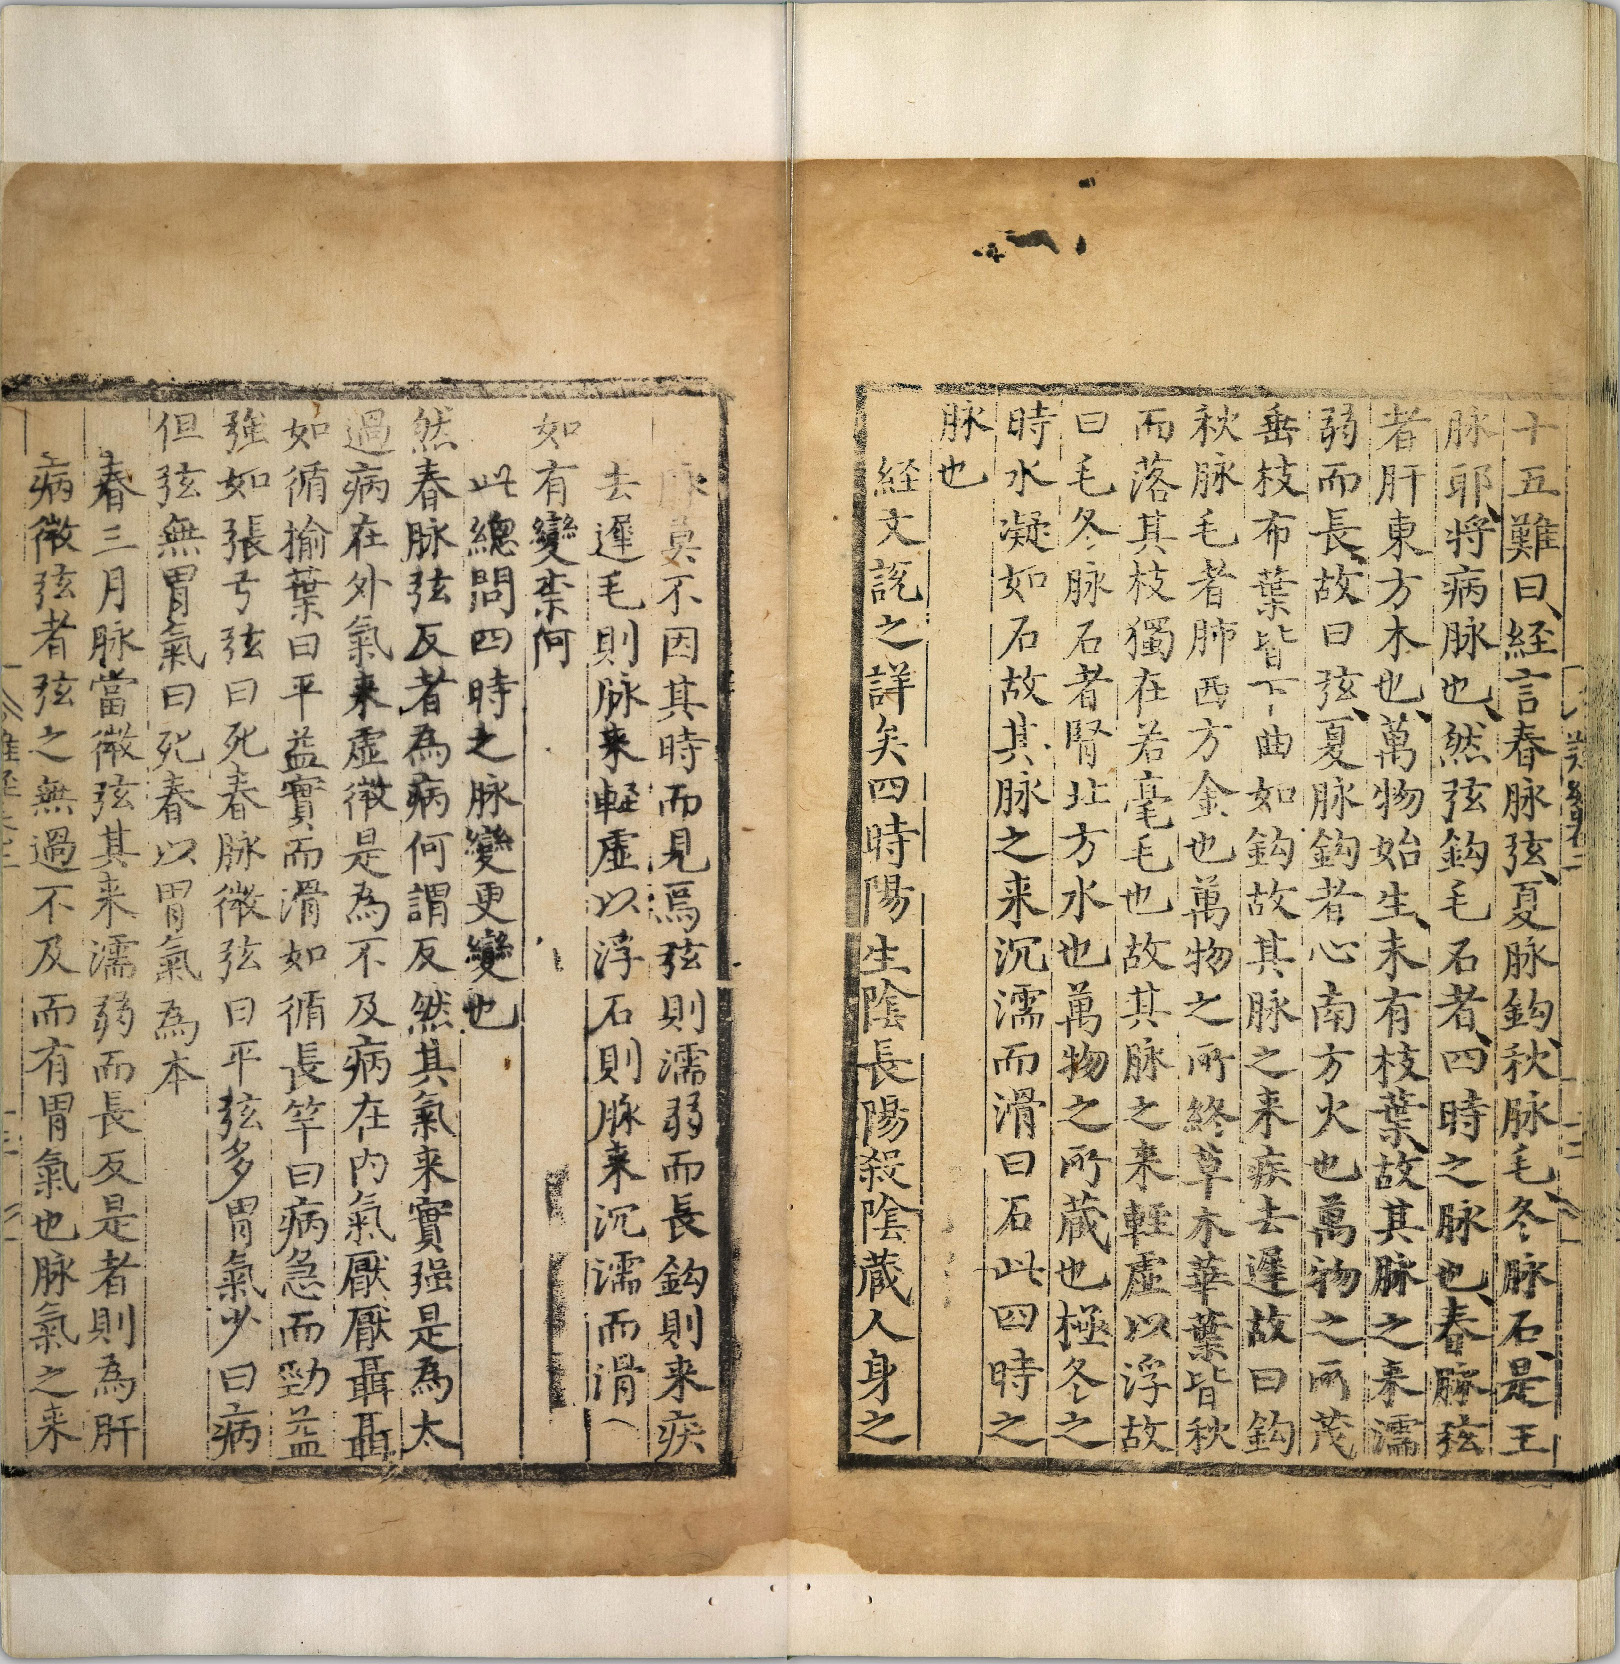 十五難曰経言春脉弦夏脉鈎秋脉毛冬脉石是王
脉耶将病脉也然弦鈎毛石者四時之脉也春脉弦
者肝東方木也萬物始生未有枝葉故其脉之来濡
弱而長故曰弦夏脉鈎者心南方火也萬物之所茂
垂枝布葉皆下曲如鈎故其脉之来疾去遲故曰鈎
秋脉毛者肺西方金也萬物之所終草木華葉皆秋
而落其枝獨在若毫毛也故其脉之来軽虚以浮故
曰毛冬脉石者腎北方水也萬物之所蔵也極冬之
時水凝如石故其脉之来沉濡而滑曰石此四時之
脉也
経文説之詳矣四時陽生陰長陽殺陰蔵人身之
脉莫不因其時而見焉弦則濡弱而長鈎則来疾
去遲毛則脉来軽虚以浮石則脉来沉濡而滑
如有變柰何
此總問四時之脉變更變也
然春脉弦反者為病何謂反然其氣来實强是為太
過病在外氣来虚微是為不及病在内氣厭厭聶聶
如循揄葉曰平益實而滑如循長竿曰病急而勁益
強如張弓弦曰死春脉微弦曰平弦多胃氣少曰病
但弦無胃氣曰死春以胃氣為本
春三月脉當微弦其来濡弱而長反是者則為肝
病微弦者弦之無過不及而有胃氣也脉氣之来